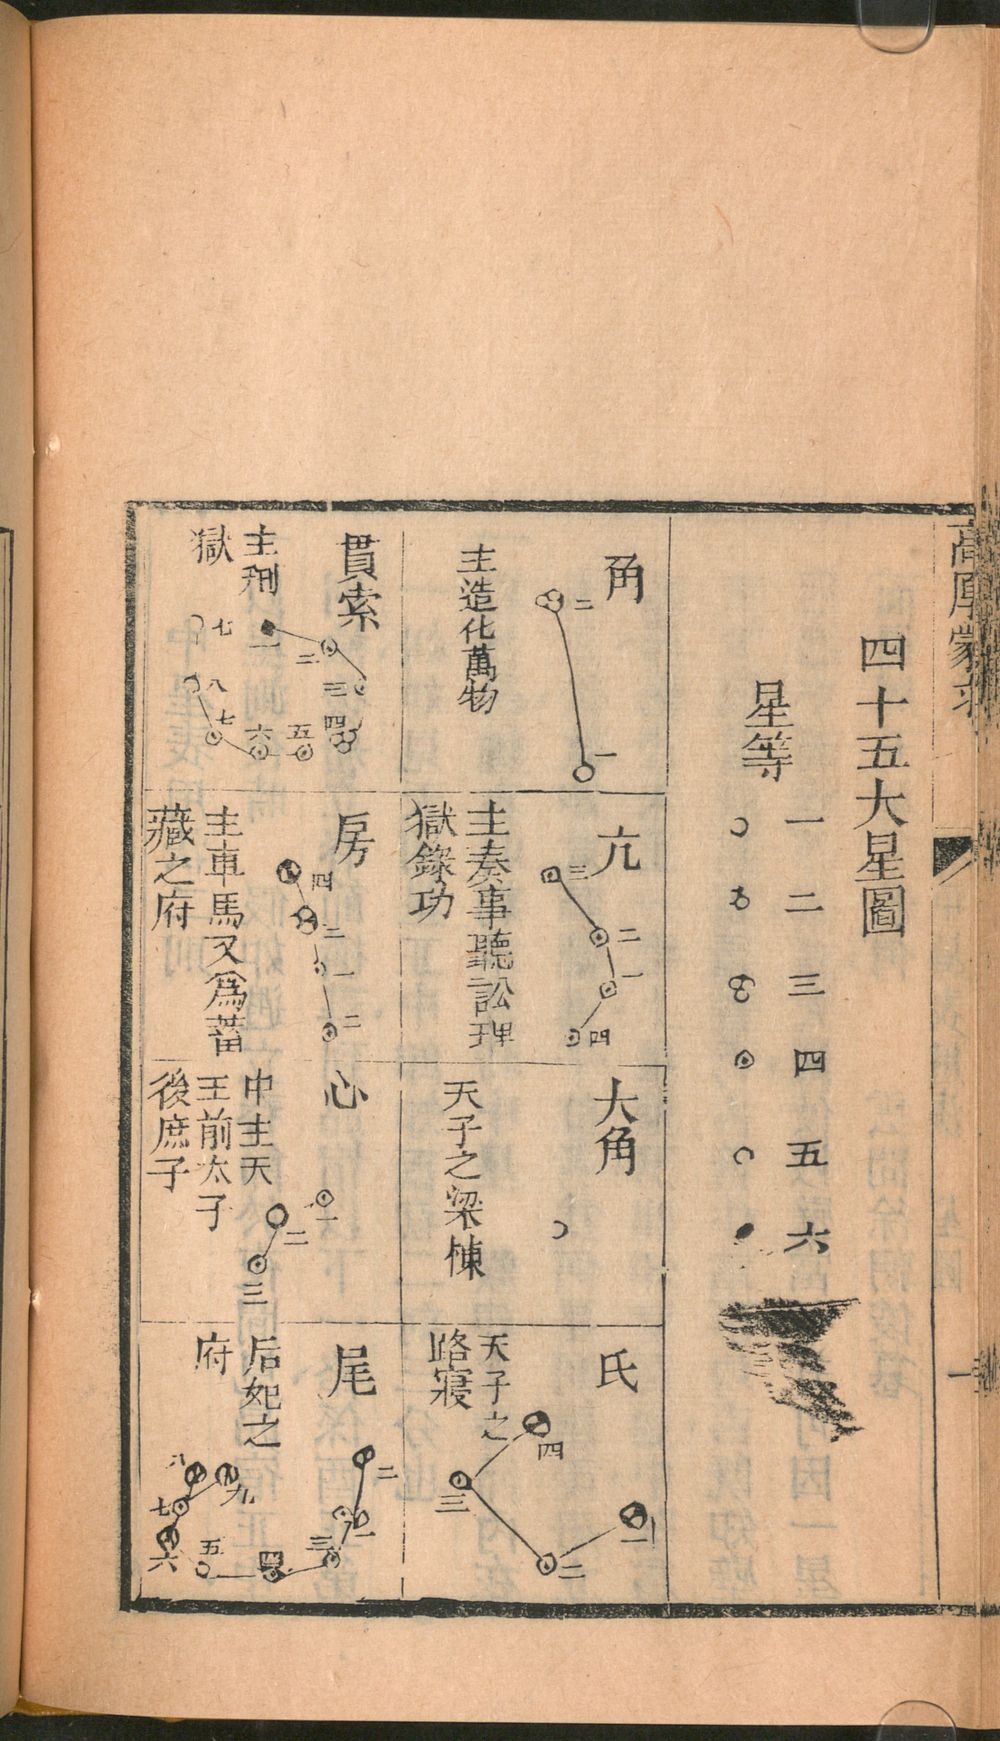 高厚蒙求
一
四十五大星圖
星等
一 二 三 四 五 六
角
二
一
主造化萬物
亢
三
二
一
四
主奏事聽訟理
獄錄功
大角
天子之梁棟
氐
四
三
二
一
天子之
路寢
貫索
一
二
三
四
五
六
七
八
七
主刑
獄
房
四
二
一
二
主車馬又爲蓄
藏之府
心
一
二
三
中主天
王前太子
後庶子
尾
二
一
三
四
五
六
七
八
九
后妃之
府